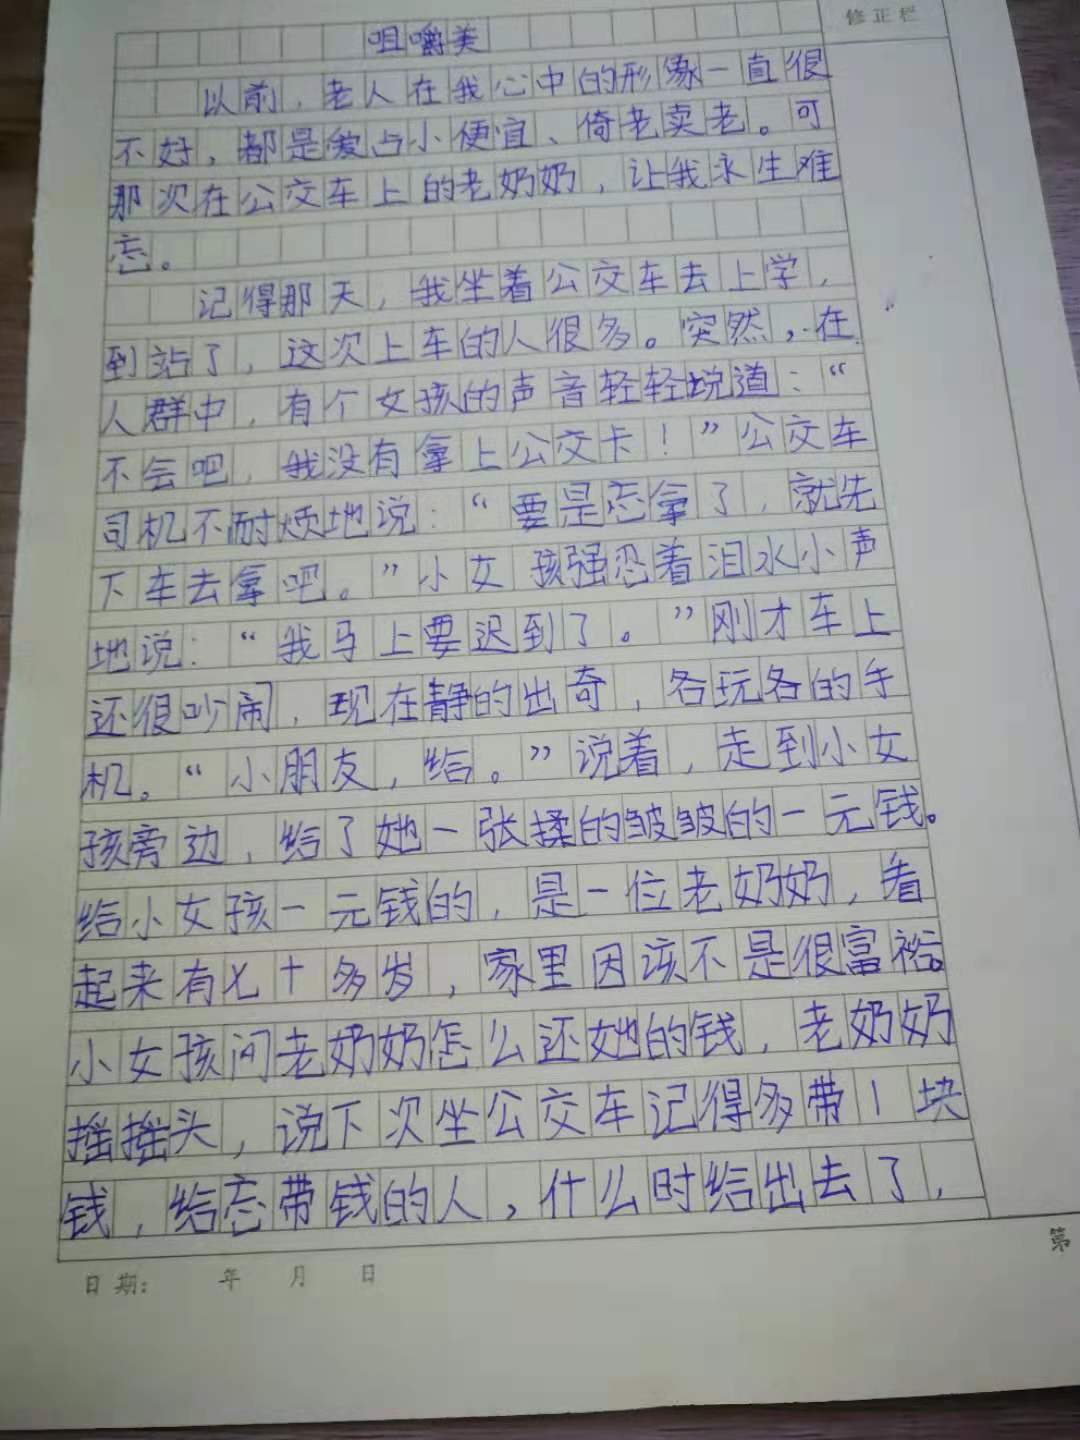 修正栏
咀嚼美
以前，老人在我心中的形象一直很
不好，都是爱占小便宜、倚老卖老。可
那次在公交车上的老奶奶，让我永生难
忘。
记得那天，我坐着公交车去上学，
到站了，这次上车的人很多。突然，在
人群中，有个女孩的声音轻轻说道：“
不会吧，我没有拿上公交卡！”公交车
司机不耐烦地说：“要是忘拿了，就先
下车去拿吧。”小女孩强忍着泪水小声
地说：“我马上要迟到了。”刚才车上
还很吵闹，现在静的出奇，各玩各的手
机。“小朋友，给。”说着，走到小女
孩旁边，给了她一张揉的皱皱的一元钱。
给小女孩一元钱的，是一位老奶奶，看
起来有七十多岁，家里因该不是很富裕。
小女孩问老奶奶怎么还她的钱，老奶奶
摇摇头，说下次坐公交车记得多带1块
钱，给忘带钱的人，什么时给出去了，
第
日期： 年 月 日